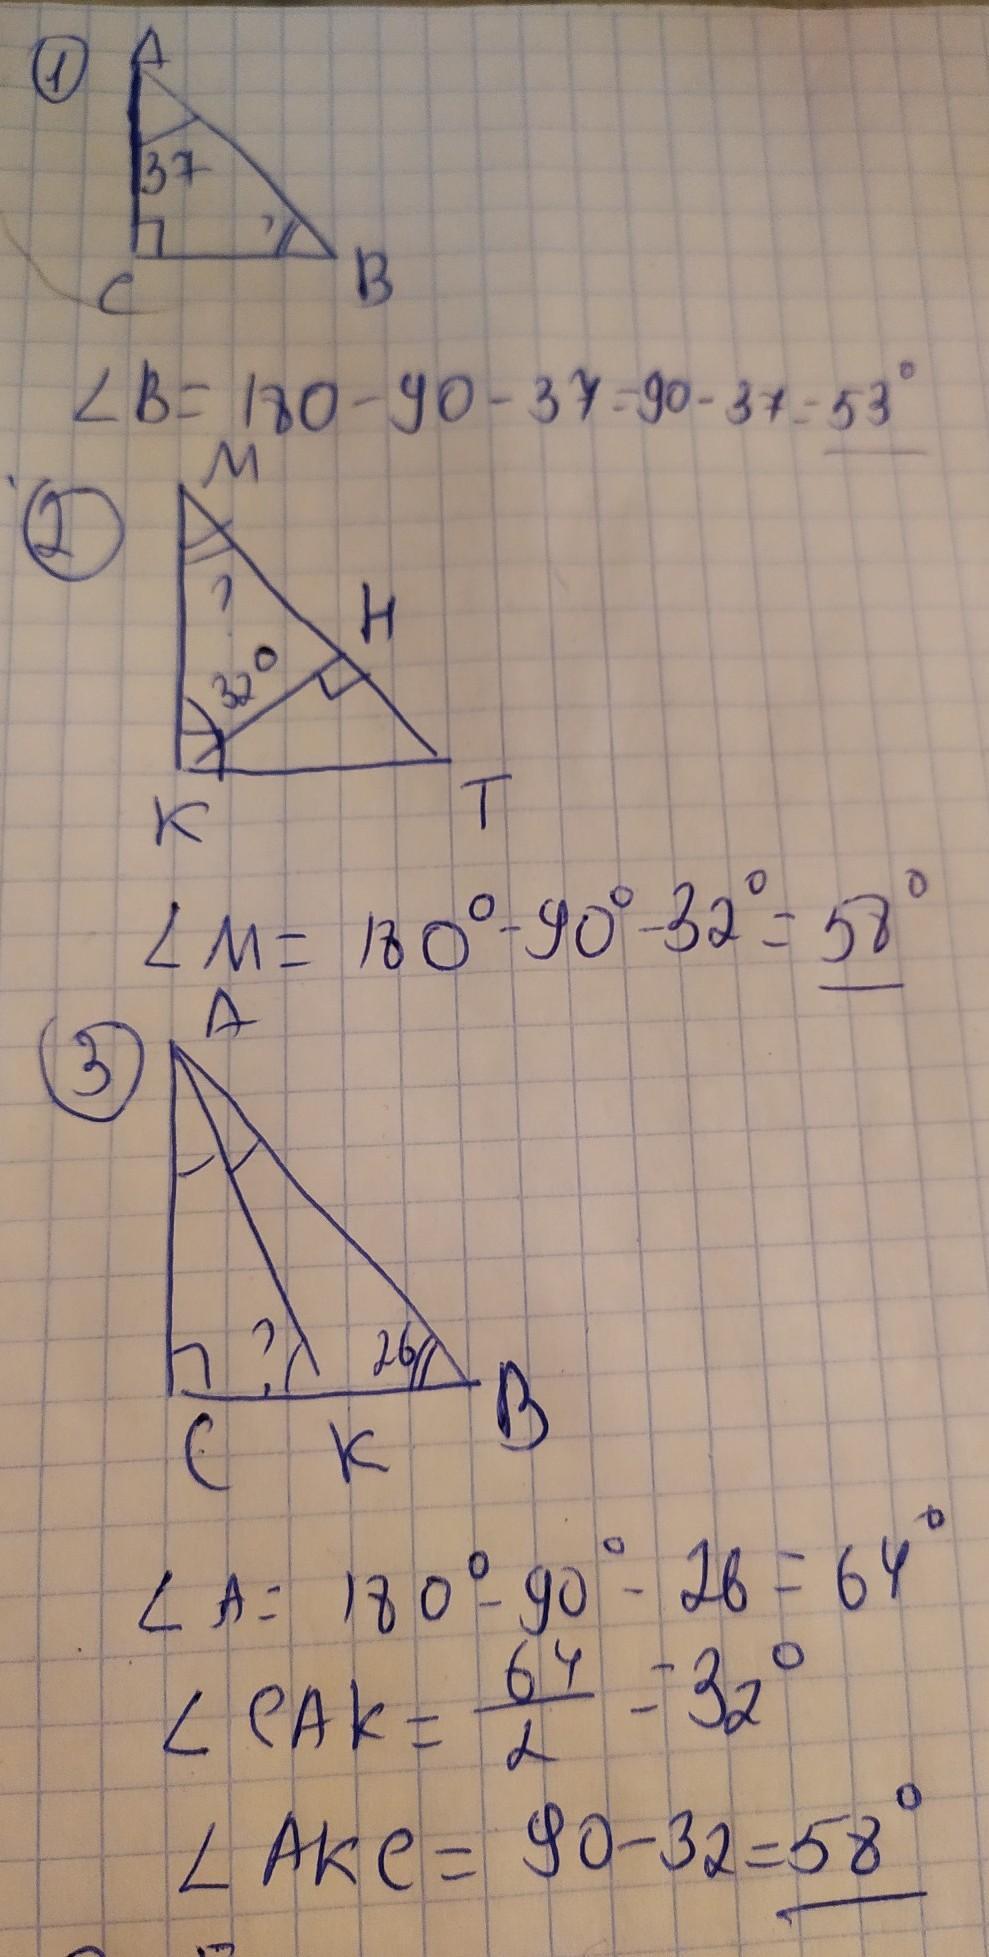 1
A
37
?
C
B
∠B = 180 - 90 - 37 = 90 - 37 = 53°
2
M
?
H
32°
K
T
∠M = 180° - 90° - 32° = 58°
3
A
?
26
C
K
B
∠A = 180° - 90° - 26 = 64°
∠CAK = 64/2 = 32°
∠AKC = 90 - 32 = 58°